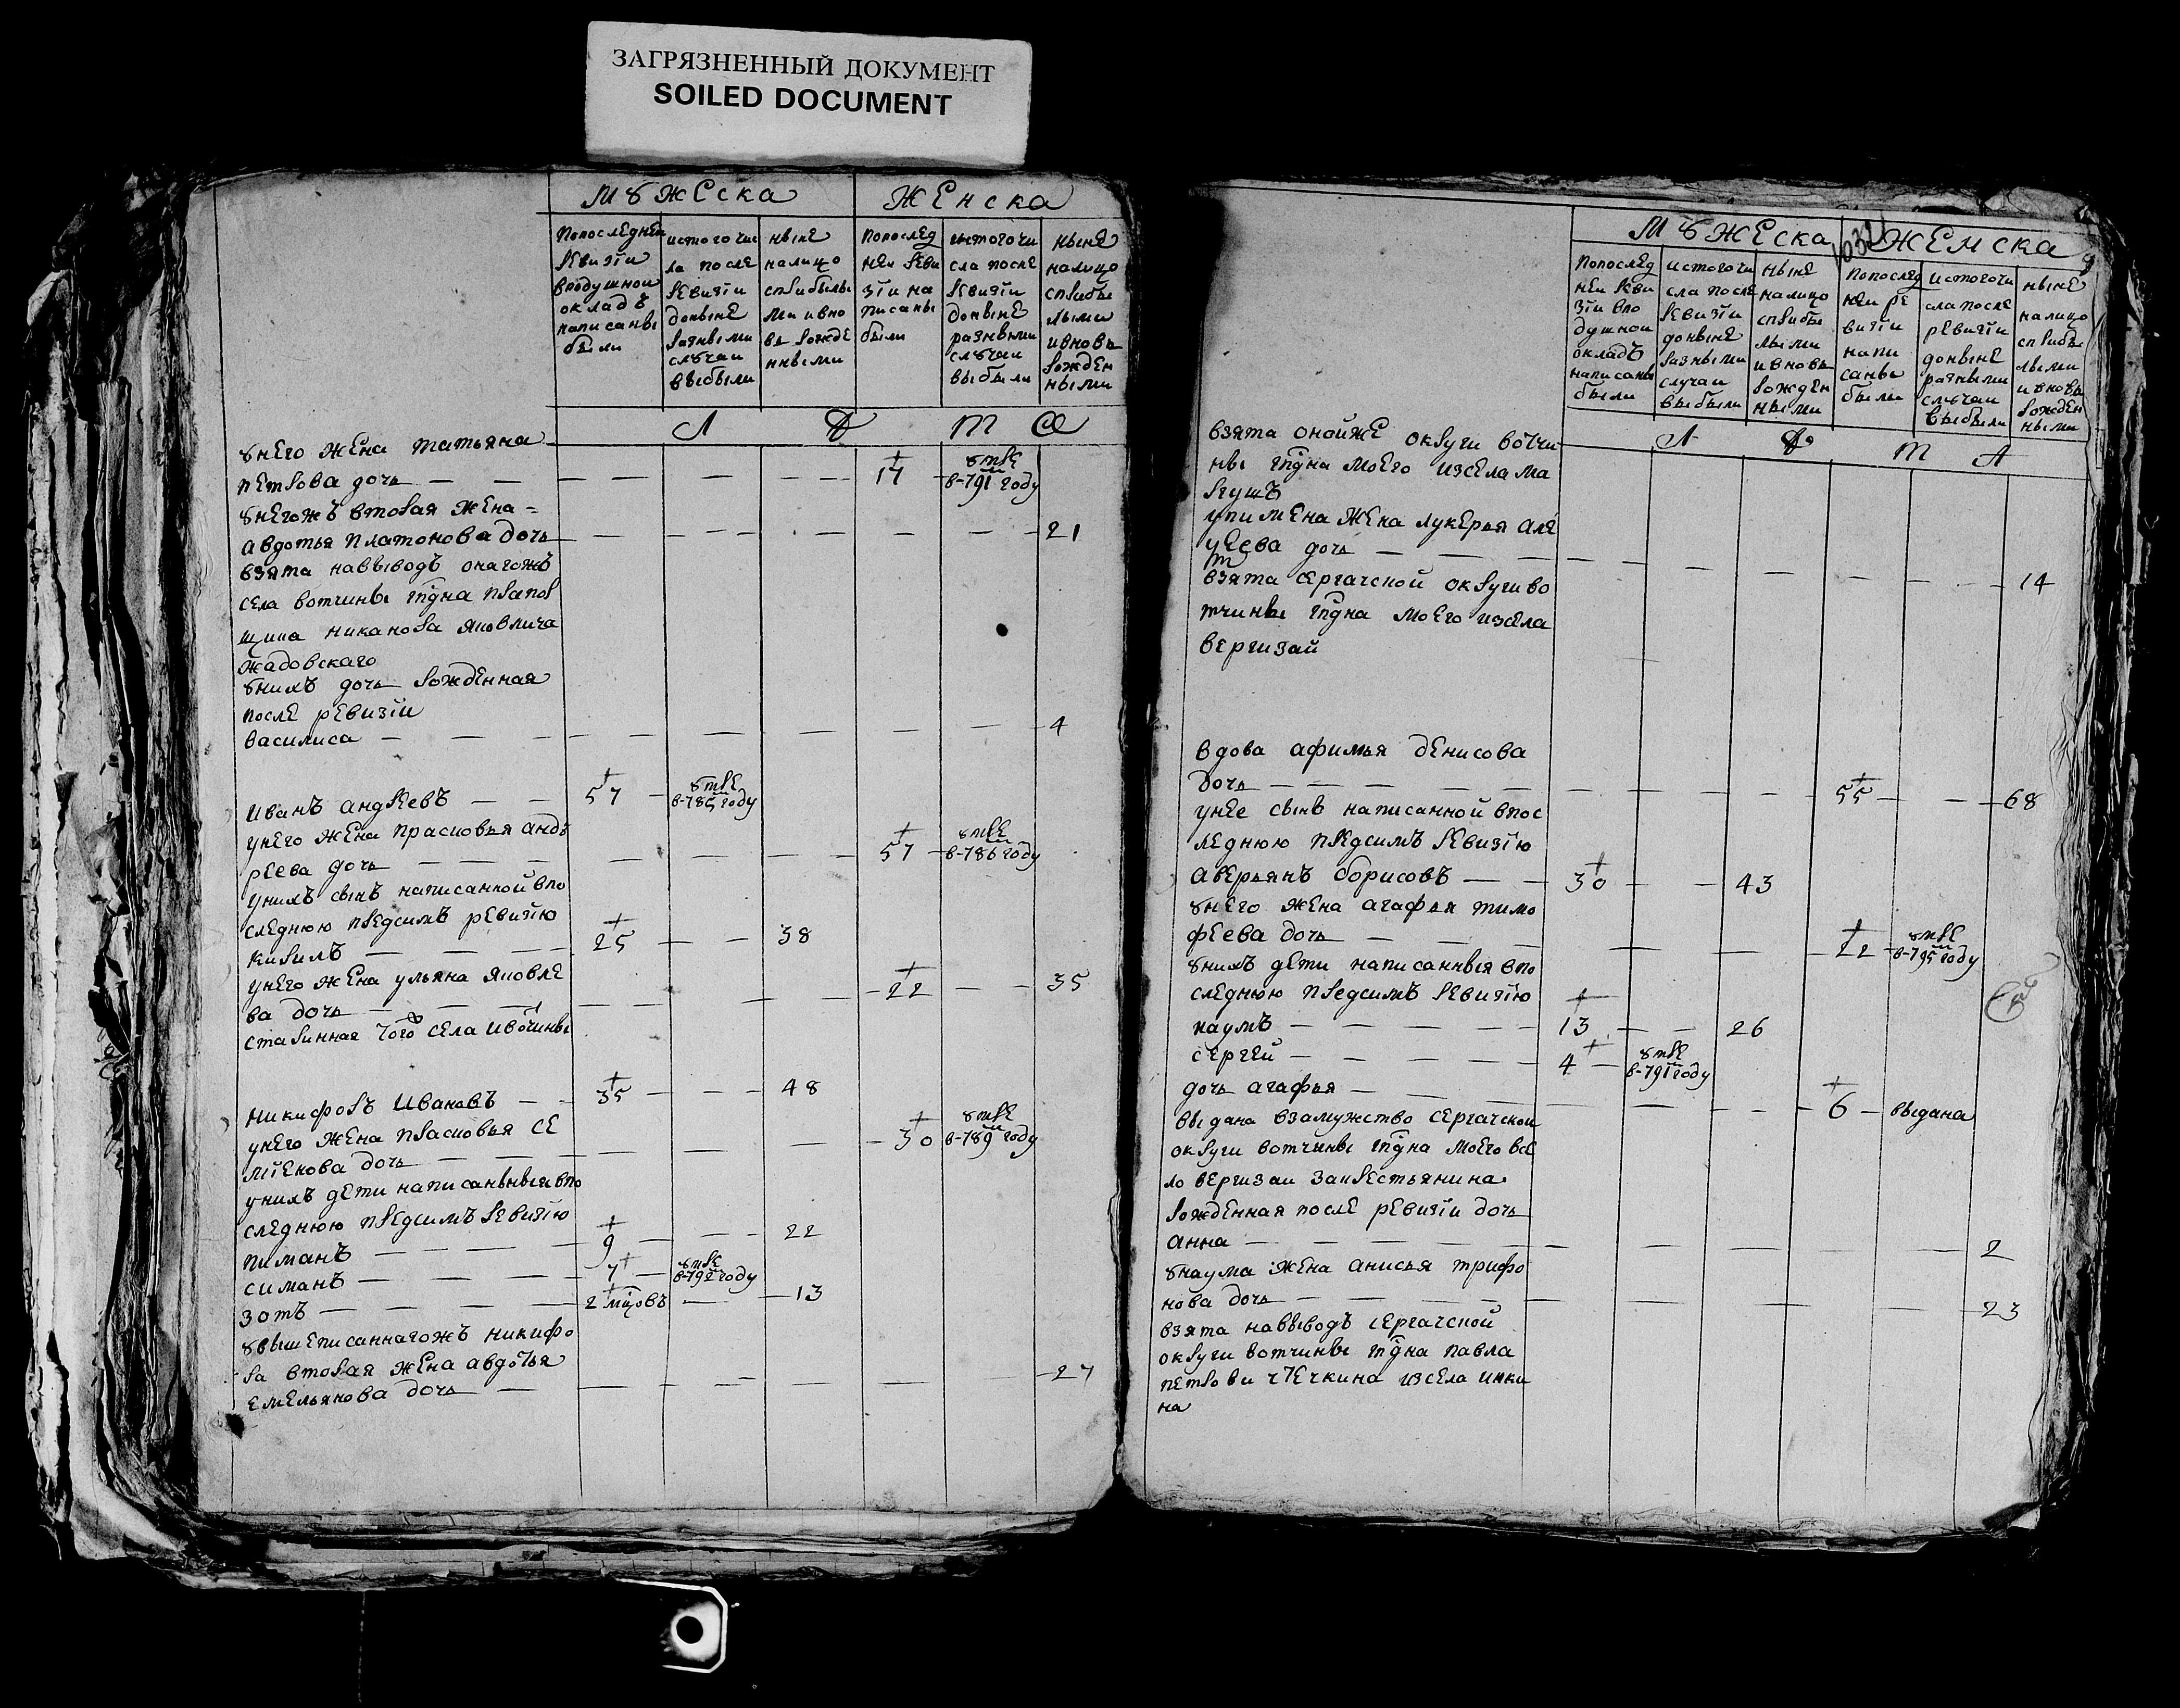 ЗАГРЯЗНЕННЫЙ ДОКУМЕНТ
SOILED DOCUMENT
МꙋЖЕска
ЖЕнска
Попоследнеи ревизіи вподушнои окладъ написаны были
истогочисла после ревизіи доныне разными слꙋчаи выбыли
ныне налицо сприбылыми ивновь рожденными
Попоследнеи ревизіи написаны были
истогочисла после ревизіи доныне разными слꙋчаи выбыли
ныне налицо сприбылыми ивновь рожденными
Л Ѣ Т А
ꙋнего жена татьяна
петрова дочь — — 17 ꙋмре в-791м году
ꙋнегожъ вторая жена =
авдотья платонова дочь — 21
взята навыводъ онагожъ
села вотчины гпдна прапор
щика никанора яковлича
жадовскаго
ꙋнихъ дочь рожденная
после ревизіи
василиса — — — 4
иванъ андреевъ — — 57 — ꙋмре в-785м году
унего жена прасковья анд
реева дочь — — — 57 — ꙋмре в-786м году
унихъ сынъ написанной впо
следнюю предсимъ ревизію
кирилъ — — — 25 — — 38
унего жена ульяна яковле
ва дочь — — — 22 — — 35
старинная того села ивотчины
никифоръ ивановъ — — 35 — — 48
унего жена прасковья се
мѣенова дочь — — — 30 ꙋмре в-789м году
унихъ дети написанныя впо
следнюю предсимъ ревизію
пиманъ — — — 9 — — 22
симанъ — — — 7 — ꙋмре в-792м году
зотъ — — — 2 мцовъ — 13
ꙋвышеписаннагожъ никифо
ра вторая жена авдотья
емельянова дочь — 27
МꙋЖЕска
ЖЕнска
1032
Попоследнеи ревизіи вподушнои окладъ написаны были
истогочисла после ревизіи доныне разными случаи выбыли
ныне налицо сприбылыми ивновь рожденными
Попоследнеи ревизіи написаны были
истогочисла после ревизіи доныне разными слꙋчаи выбыли
ныне налицо сприбылыми ивновь рожденными
Л Ѣ Т А
взята онойже округи вотчи
ны гпдна моего изсела ма
ꙋпимена жена лукерья але
дочь — — — 14
взята сергачской округи во
тчины гпдна моего изсела
вергизай
вдова афимья денисова
дочь — — — 55 — — 68
унее сынъ написанной впос
леднюю предсимъ ревизію
аверьянъ борисовъ — — 30 — — 43
ꙋнего жена агафья тимо
феева дочь — — — 22 — ꙋмре в-795м году
ꙋнихъ дети написанныя впо
следнюю предсимъ ревизію
наумъ — — — 13 — — 26
сергей — — — 4 — ꙋмре в-791м году
дочь агафья — — — 6 — выдана
выдана взамужство сергачской
округи вотчины гпдна моего всѣ
ло вергизаи закрестьянина
рожденная после ревизіи дочь
анна — — — 2
ꙋнаума жена анисья трифо
нова дочь — — — 23
взята навыводъ сергачской
округи вотчины гпдна павла
изсела инки
на